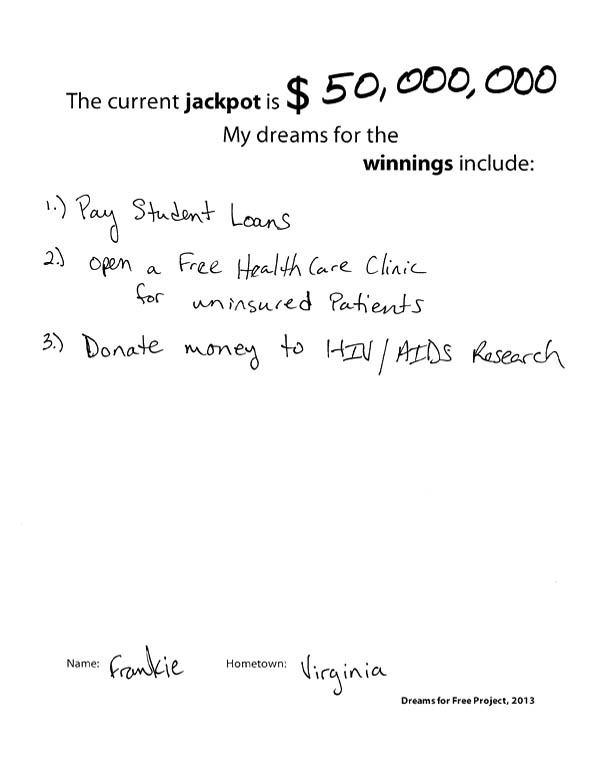 The current jackpot is $ 50,000,000
My dreams for the
winnings include:
1.) Pay Student Loans
2.) open a Free Health Care Clinic
for uninsured Patients
3.) Donate money to HIV/AIDS Research
Name: Frankie Hometown: Virginia
Dreams for Free Project, 2013